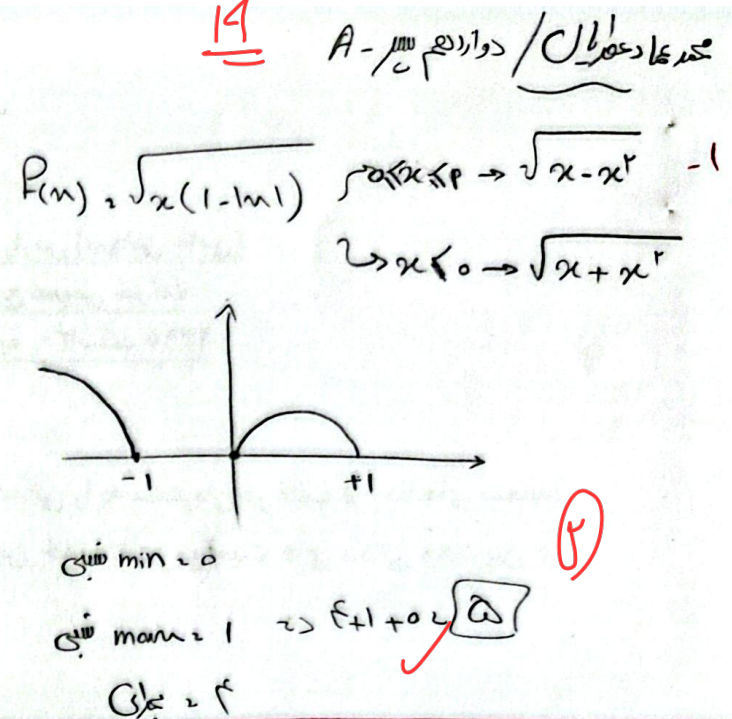 ۱۹
محمد عماد / دوازدهم A -
f(x) = √x(1-|x|) → 0≤x≤1 → √x - x² - ۱
→ x ≤ 0 → √x + x²
-1 +1
۲
نسبی min = 0
نسبی max = 1 => ۴+1+0 = ۵
بحرانی = ۴